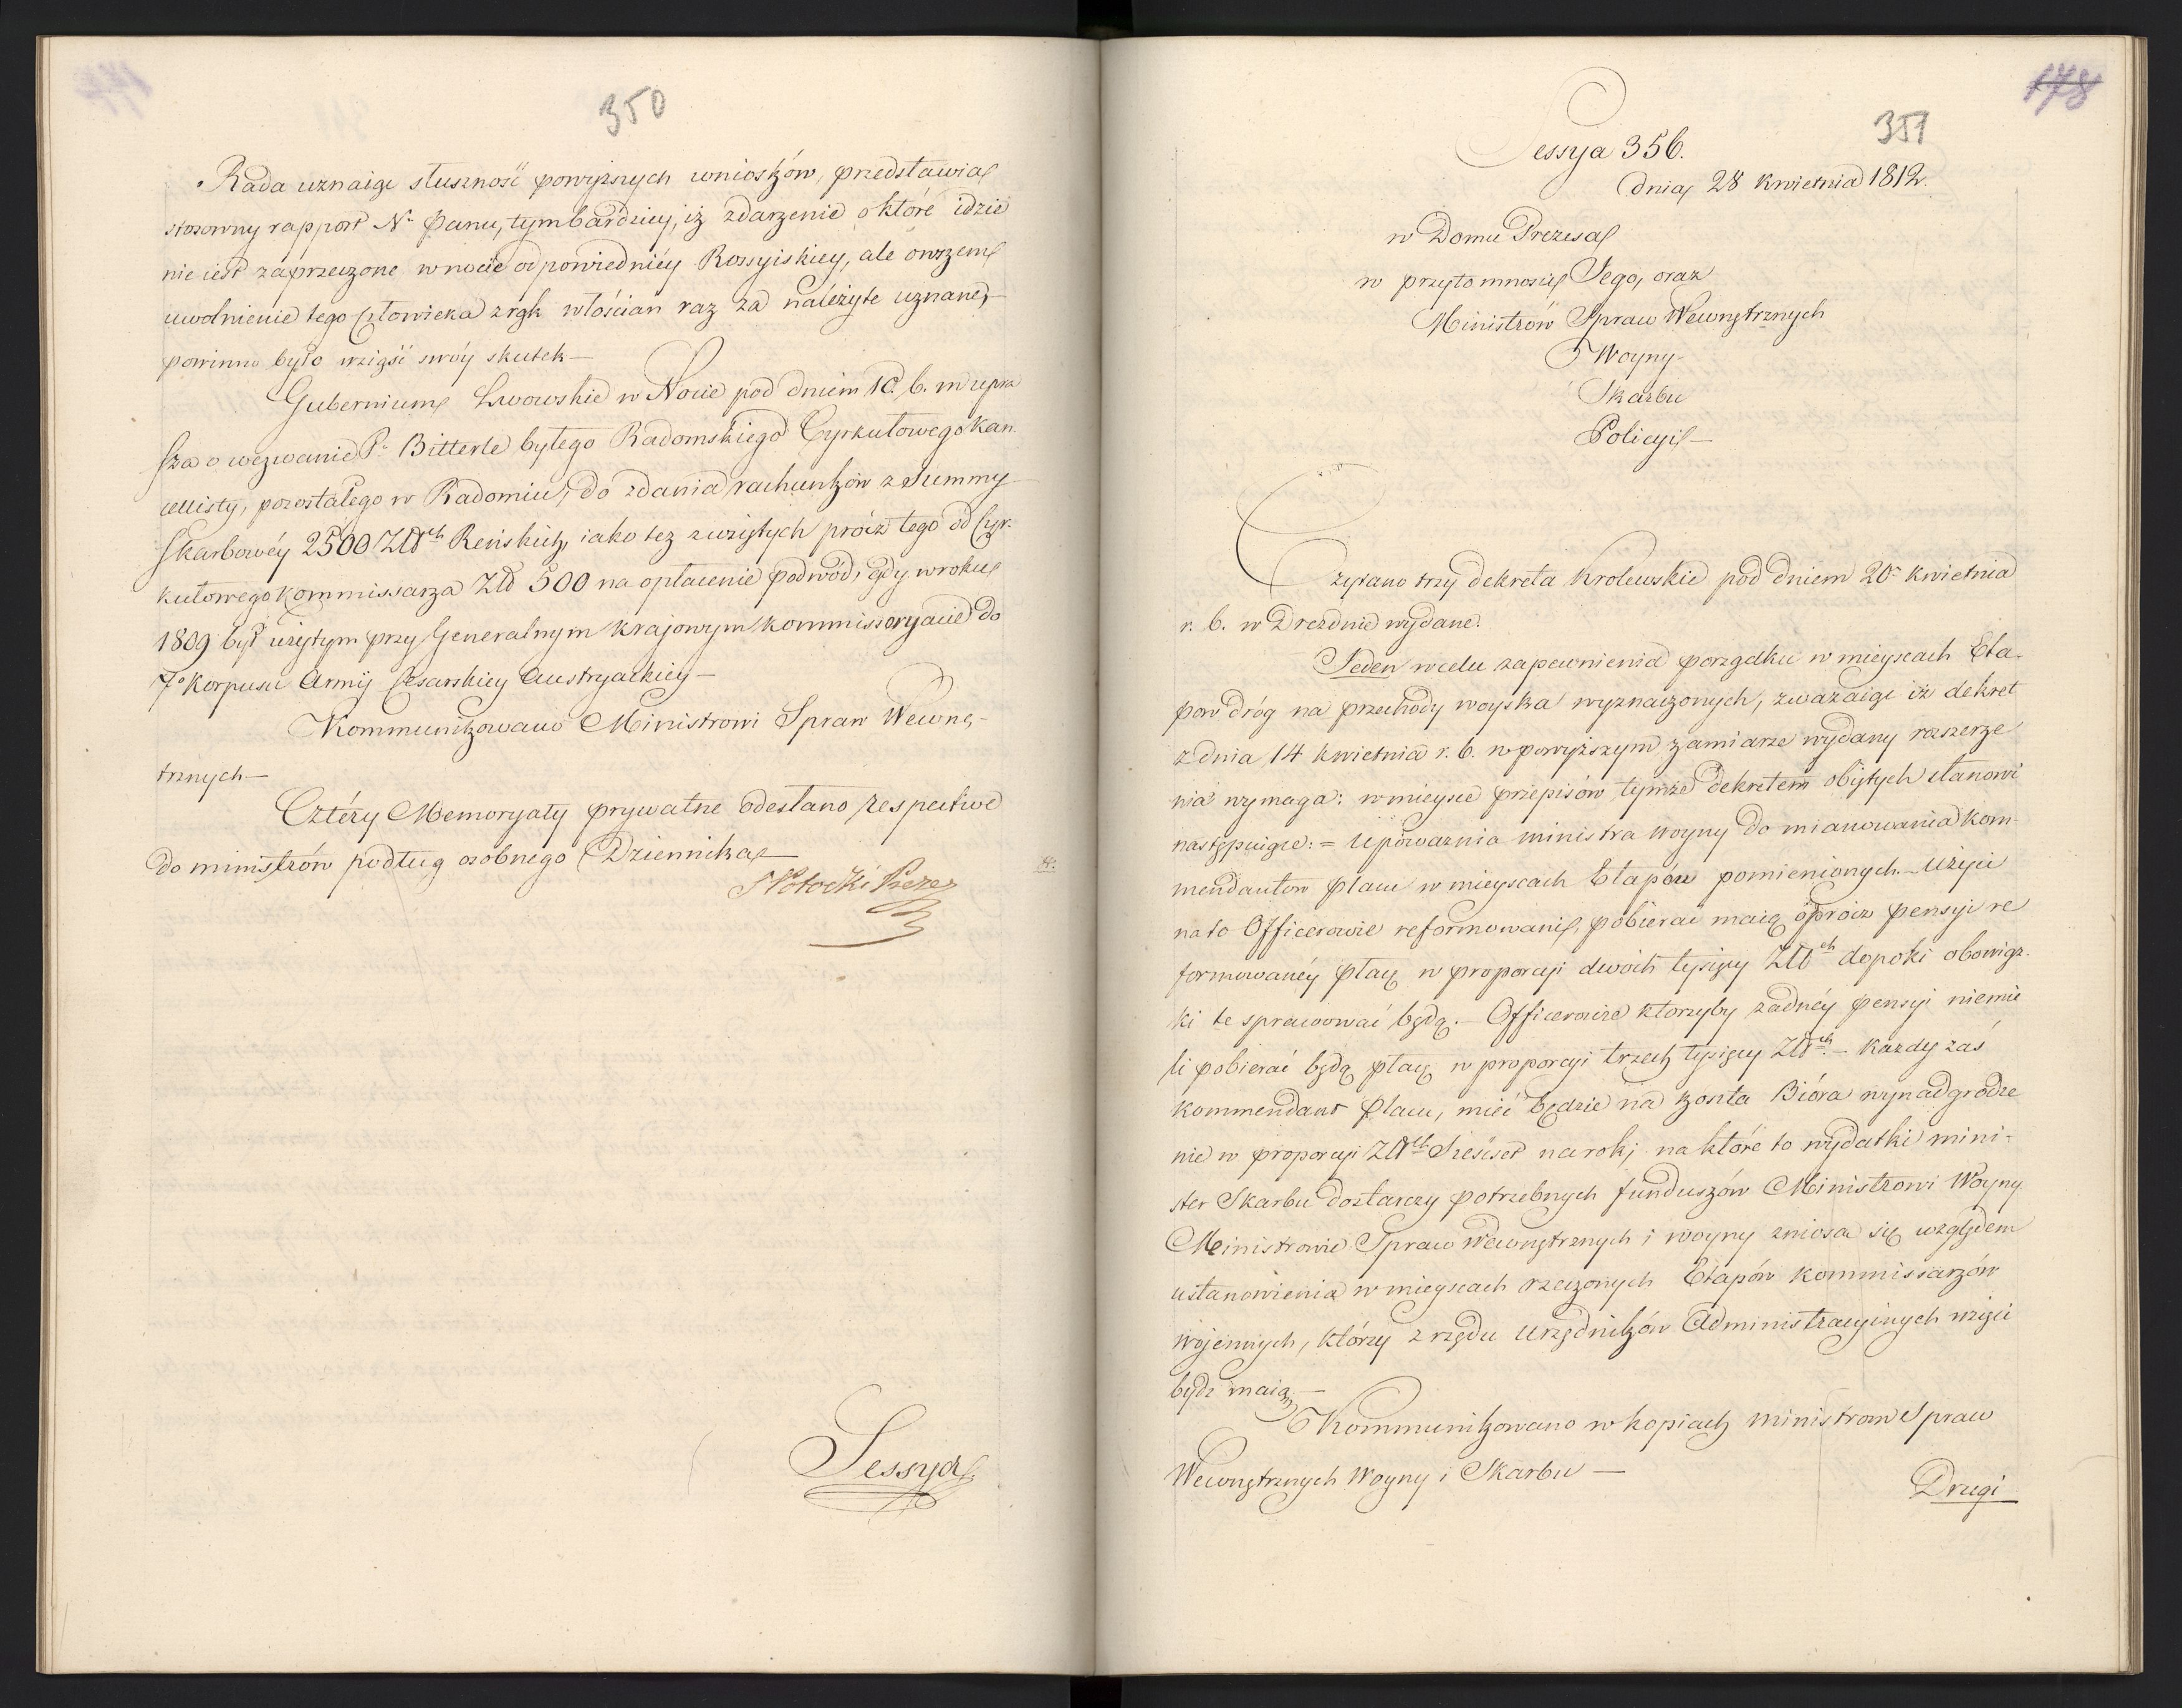 350
Rada uznaiąc słuszność powyższych wniosków, przedstawia
stosowny rapport Nu Panu, tymbardziey, iż zdarzenie o które idzie
nie iest zaprzeczone w nocie odpowiedniéy Rossyiskiey, ale owszem
uwolnienie tego Człowieka z rąk włościan raz za należyte uznane,
powinno było wziąść swóy skutek —
Gubernium Lwowskie w Nocie pod dniem 10. b. m upra
sza o wezwanie P. Bitterle byłego Radomskiego Cyrkułowego Kan
cellisty, pozostałego w Radomiu, do zdania rachunków z Summy
Skarbowéy 2500 Złłch Reńskich, iako też z wziętych prócz tego od Cyr-
kułowego Kommissarza Złł 500 na opłacenie podwód, gdy w roku
1809 był użytym przy Generalnym Krajowym Kommissoryacie do
7o Korpusu Armij Cesarskiey Austryackiey —
Kommunikowano Ministrowi Spraw Wewnę-
trznych —
Cztéry Memoryały prywatne odesłano respective
do ministrów podług osobnego Dziennika —
S Potocki Prezes
Sessya
178
351
Sessya 356.
dnia 28 Kwietnia 1812.
w Domu Prezesa
w przytomności Jego, oraz
Ministrów Spraw Wewnętrznych
Woyny
Skarbu
Policyi —
Czytano trzy dekreta Krolewskie pod dniem 20. Kwietnia
r. b. w Dreznie wydane.
Jeden w celu zapewnienia porządku w mieyscach Eta-
pow dróg na przechody woyska wyznaczonych, zważaiąc iż dekret
z dnia 14 Kwietnia r. b. w powyższym zamiarze wydany rozszerze
nia wymaga: w mieysce przepisów tymże dekretem obiętych stanowi
następuiące: = Upoważnia ministra Woyny do mianowania Kom-
mendantow placu w mieyscach Etapów pomienionych. — Użyci
na to Officerowie reformowani, pobierać maią oprócz pensyi re
formowanéy płacę w proporcyi dwóch tysięcy Złłch dopoki obowiąz-
ki te sprawować będą. — Officerowie ktorzyby żadnéy pensyi niemie
li pobierać będą płacę w proporcyi trzech tysięcy Złłch. — Każdy zaś
kommendant placu, mieć będzie na koszta Bióra wynadgrodze
nie w proporcyi Złłch Sześćset na rok; na które to wydatki mini-
ster Skarbu dostarczy potrzebnych funduszów Ministrowi Woyny
Ministrowie Spraw Wewnętrznych i woyny zniosą się względem
ustanowienia w mieyscach rzeczonych Etapów kommissarzów
wojennych, którzy z rzędu Urzędników Administracyinych wzięci
bydź maią. —
Kommunikowano w kopiach ministrom Spraw
Wewnętrznych Woyny i Skarbu —
Drugi